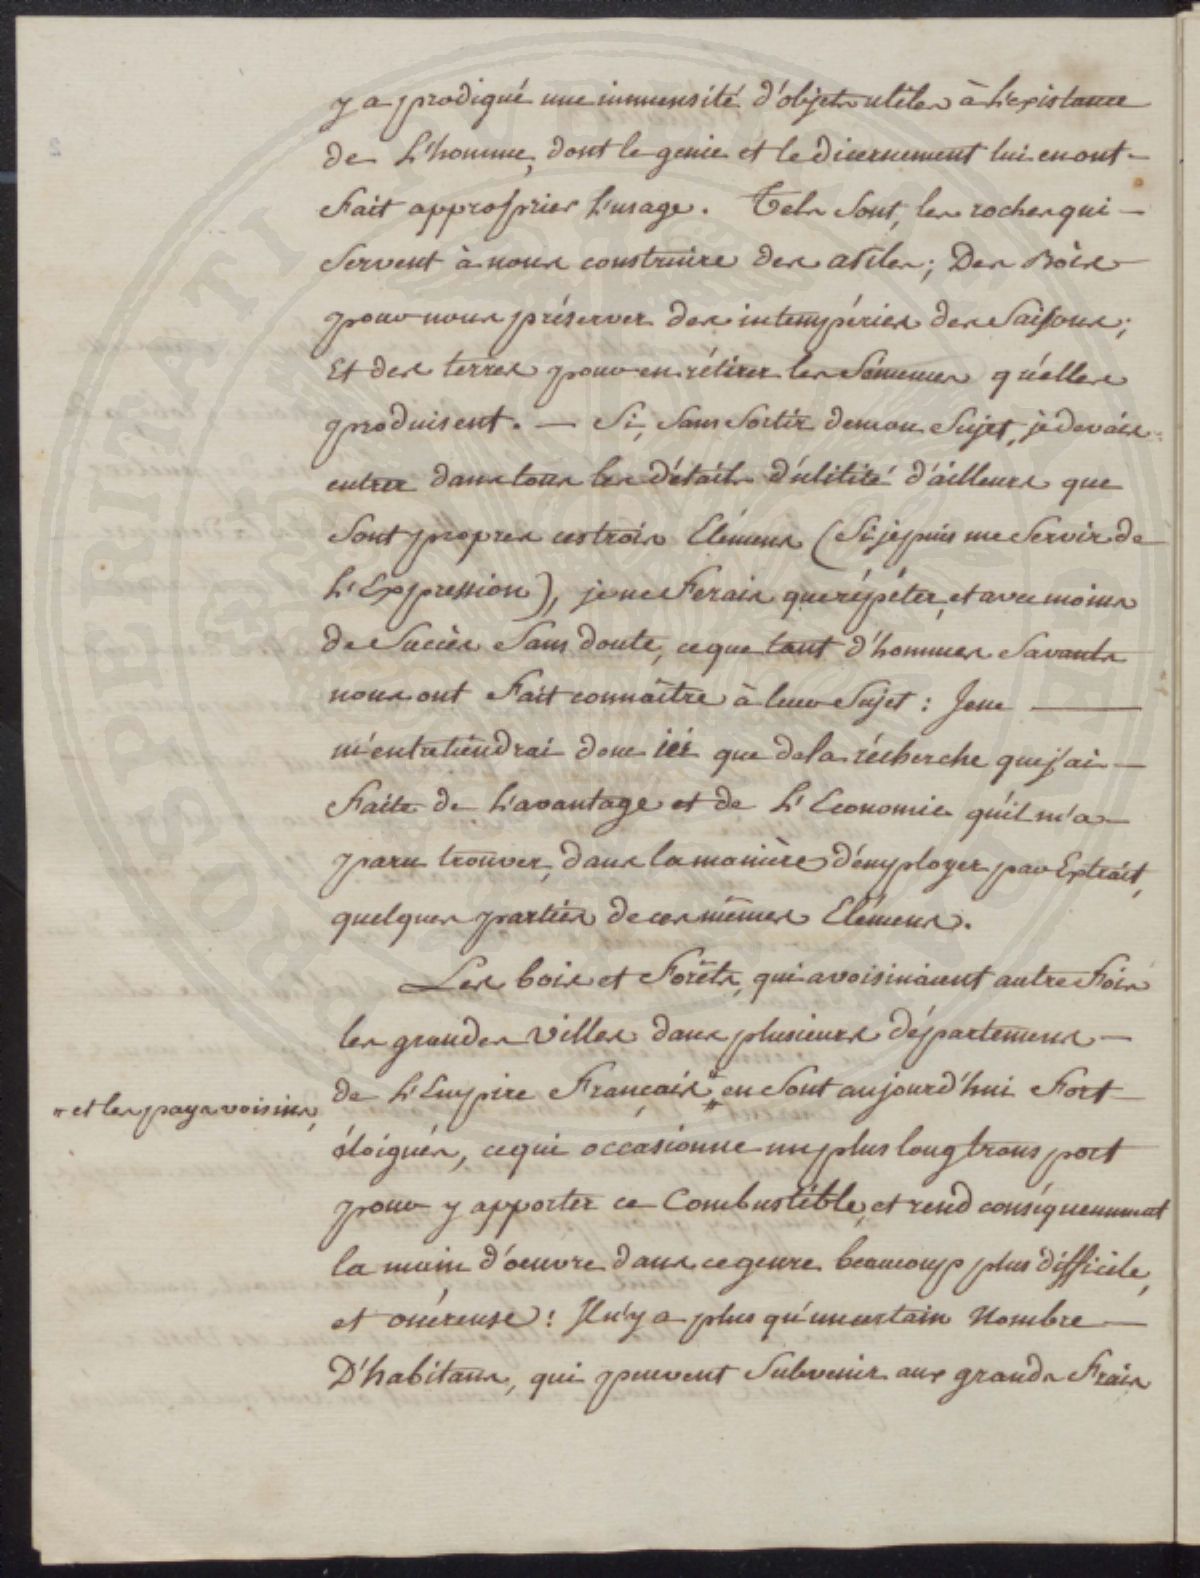 y a prodigué une immensité d'objets utiles à L'existance
de L'homme, dont le genie et le dicernement lui en ont —
Fait approprier L'usage. Tels Sont, les roches qui —
Servent à nous construire des asiles; Des Bois
pour nous préserver des intempéries des Saisons;
Et des terres pour en rétirer les Sémences qu'elles
produisent. — Si, Sans Sortir de mon Sujet, je devais
entrer dans tous les détails d'utilité d'ailleurs que
Sont propres ces trois Elémens (Si je puis me Servir de
L'Expression), je ne Ferais que répéter, et avec moins
de Succès Sans doute, ce que tant d'hommes Savants
nous ont Fait connaître à leur Sujet: Je ne —
m'entretiendrai donc ici que de la récherche que j'ai —
Faite de L'avantage et de L'Economie qu'il m'a —
paru trouver, dans la manière d'employer par Extrait,
quelques parties de ces mêmes Elémens.
Les bois et Forêts, qui avoisinaient autre Fois
les grandes Villes dans plusieurs départemens —
de L'Empire Français " en Sont aujourd'hui Fort
" et les pays voisins,
éloignés, ce qui occasionne un plus long transport
pour y apporter ce Combustible, et rend conséquemment
la main d'oeuvre dans ce genre beaucoup plus difficile,
et onéreuse: Il n'y a plus qu'un certain Nombre —
D'habitans, qui peuvent Subvenir aux grands Frais
PROSPERITATI PUBLICAE AUGENDAE
2